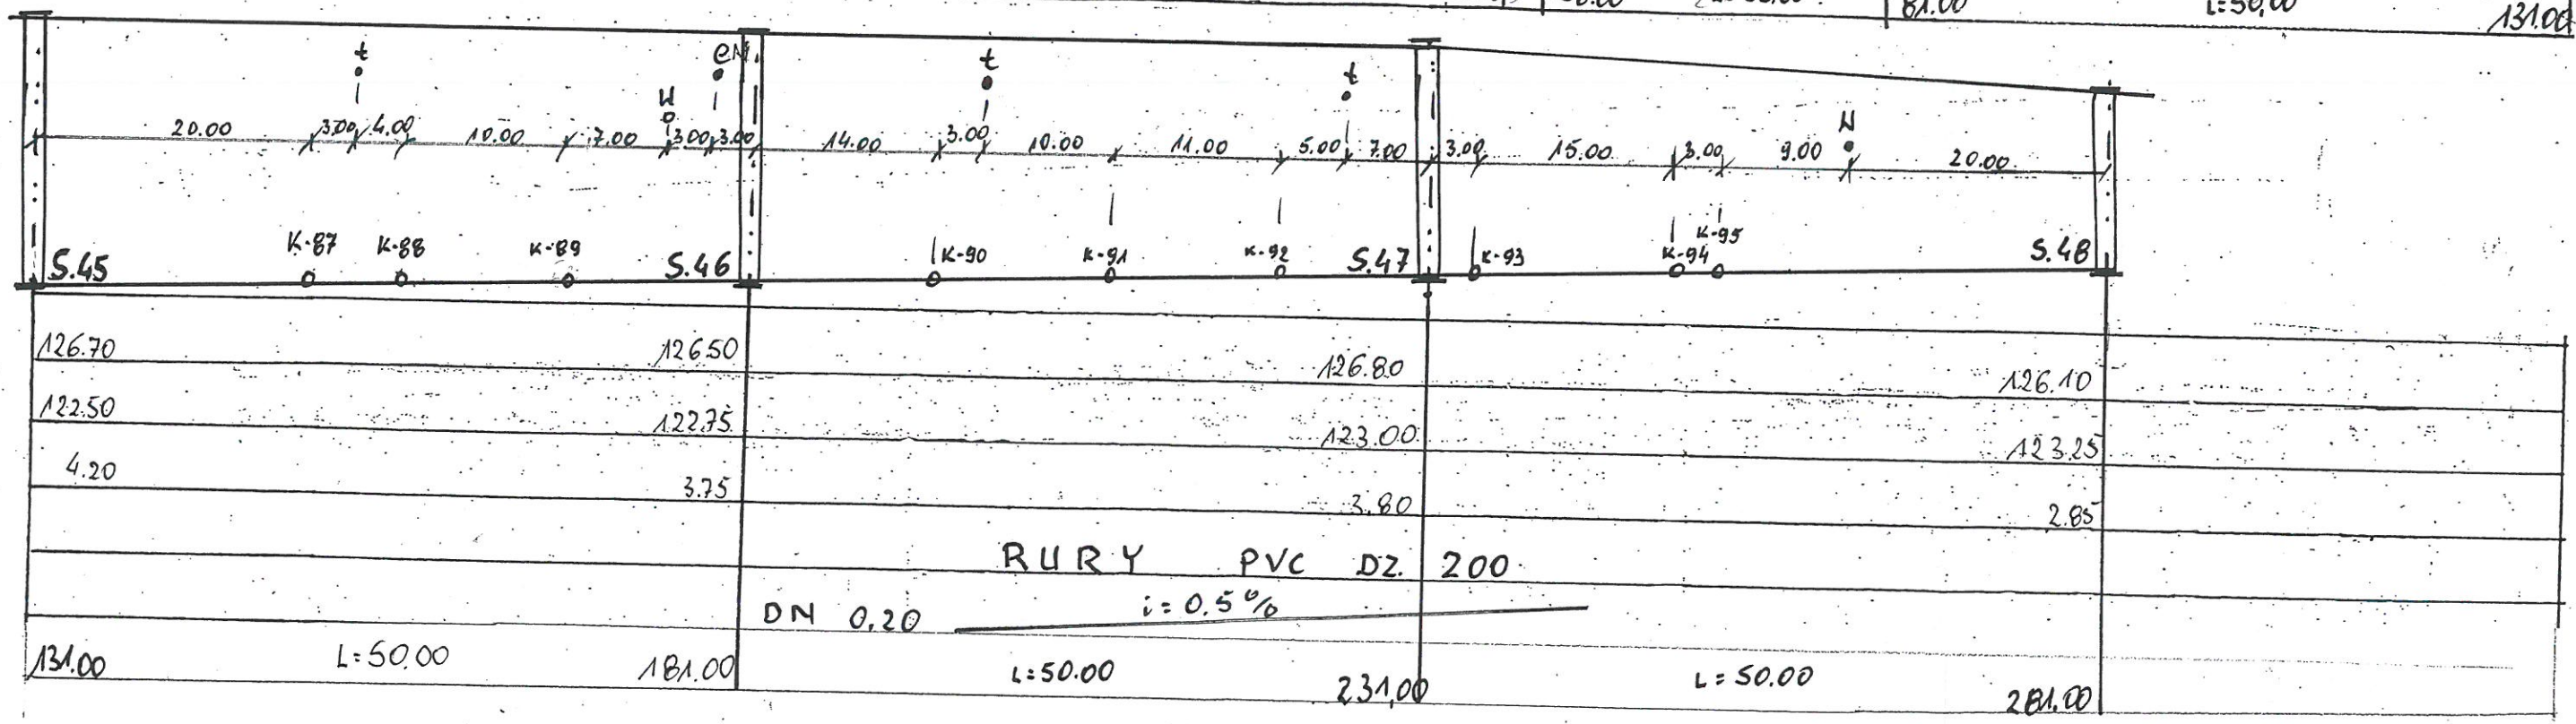 81.00 L=50,00 131.00
t eN. t t
W W
20.00 3.00 4.00 10.00 7.00 3.00 3.00 14.00 3.00 10.00 11.00 5.00 7.00 3.00 15.00 3.00 9.00 20.00
S.45 K-87 K-88 K-89 S.46 K-90 K-91 K-92 S.47 K-93 K-94 K-95 S.48
126.70 126.50 126.80 126.10
122.50 122.75 123.00 123.25
4.20 3.75 3.80 2.85
RURY PVC DZ. 200
DN 0,20 i=0.5%
131.00 L=50.00 181.00 L=50.00 231,00 L=50.00 281.00